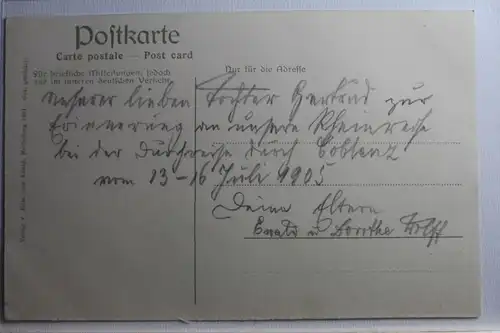 Postkarte
Carte postale — Post card
Für briefliche Mitteilungen, jedoch
nur im inneren deutschen Verkehr.
Nur für die Adresse
Unserer lieben Tochter Gertrud zur
Erinnerung an unsere Rheinreise
bei der Durchreise durch Coblenz
vom 13-16 Juli 1905
Deine Eltern
u Dorothe Wolff